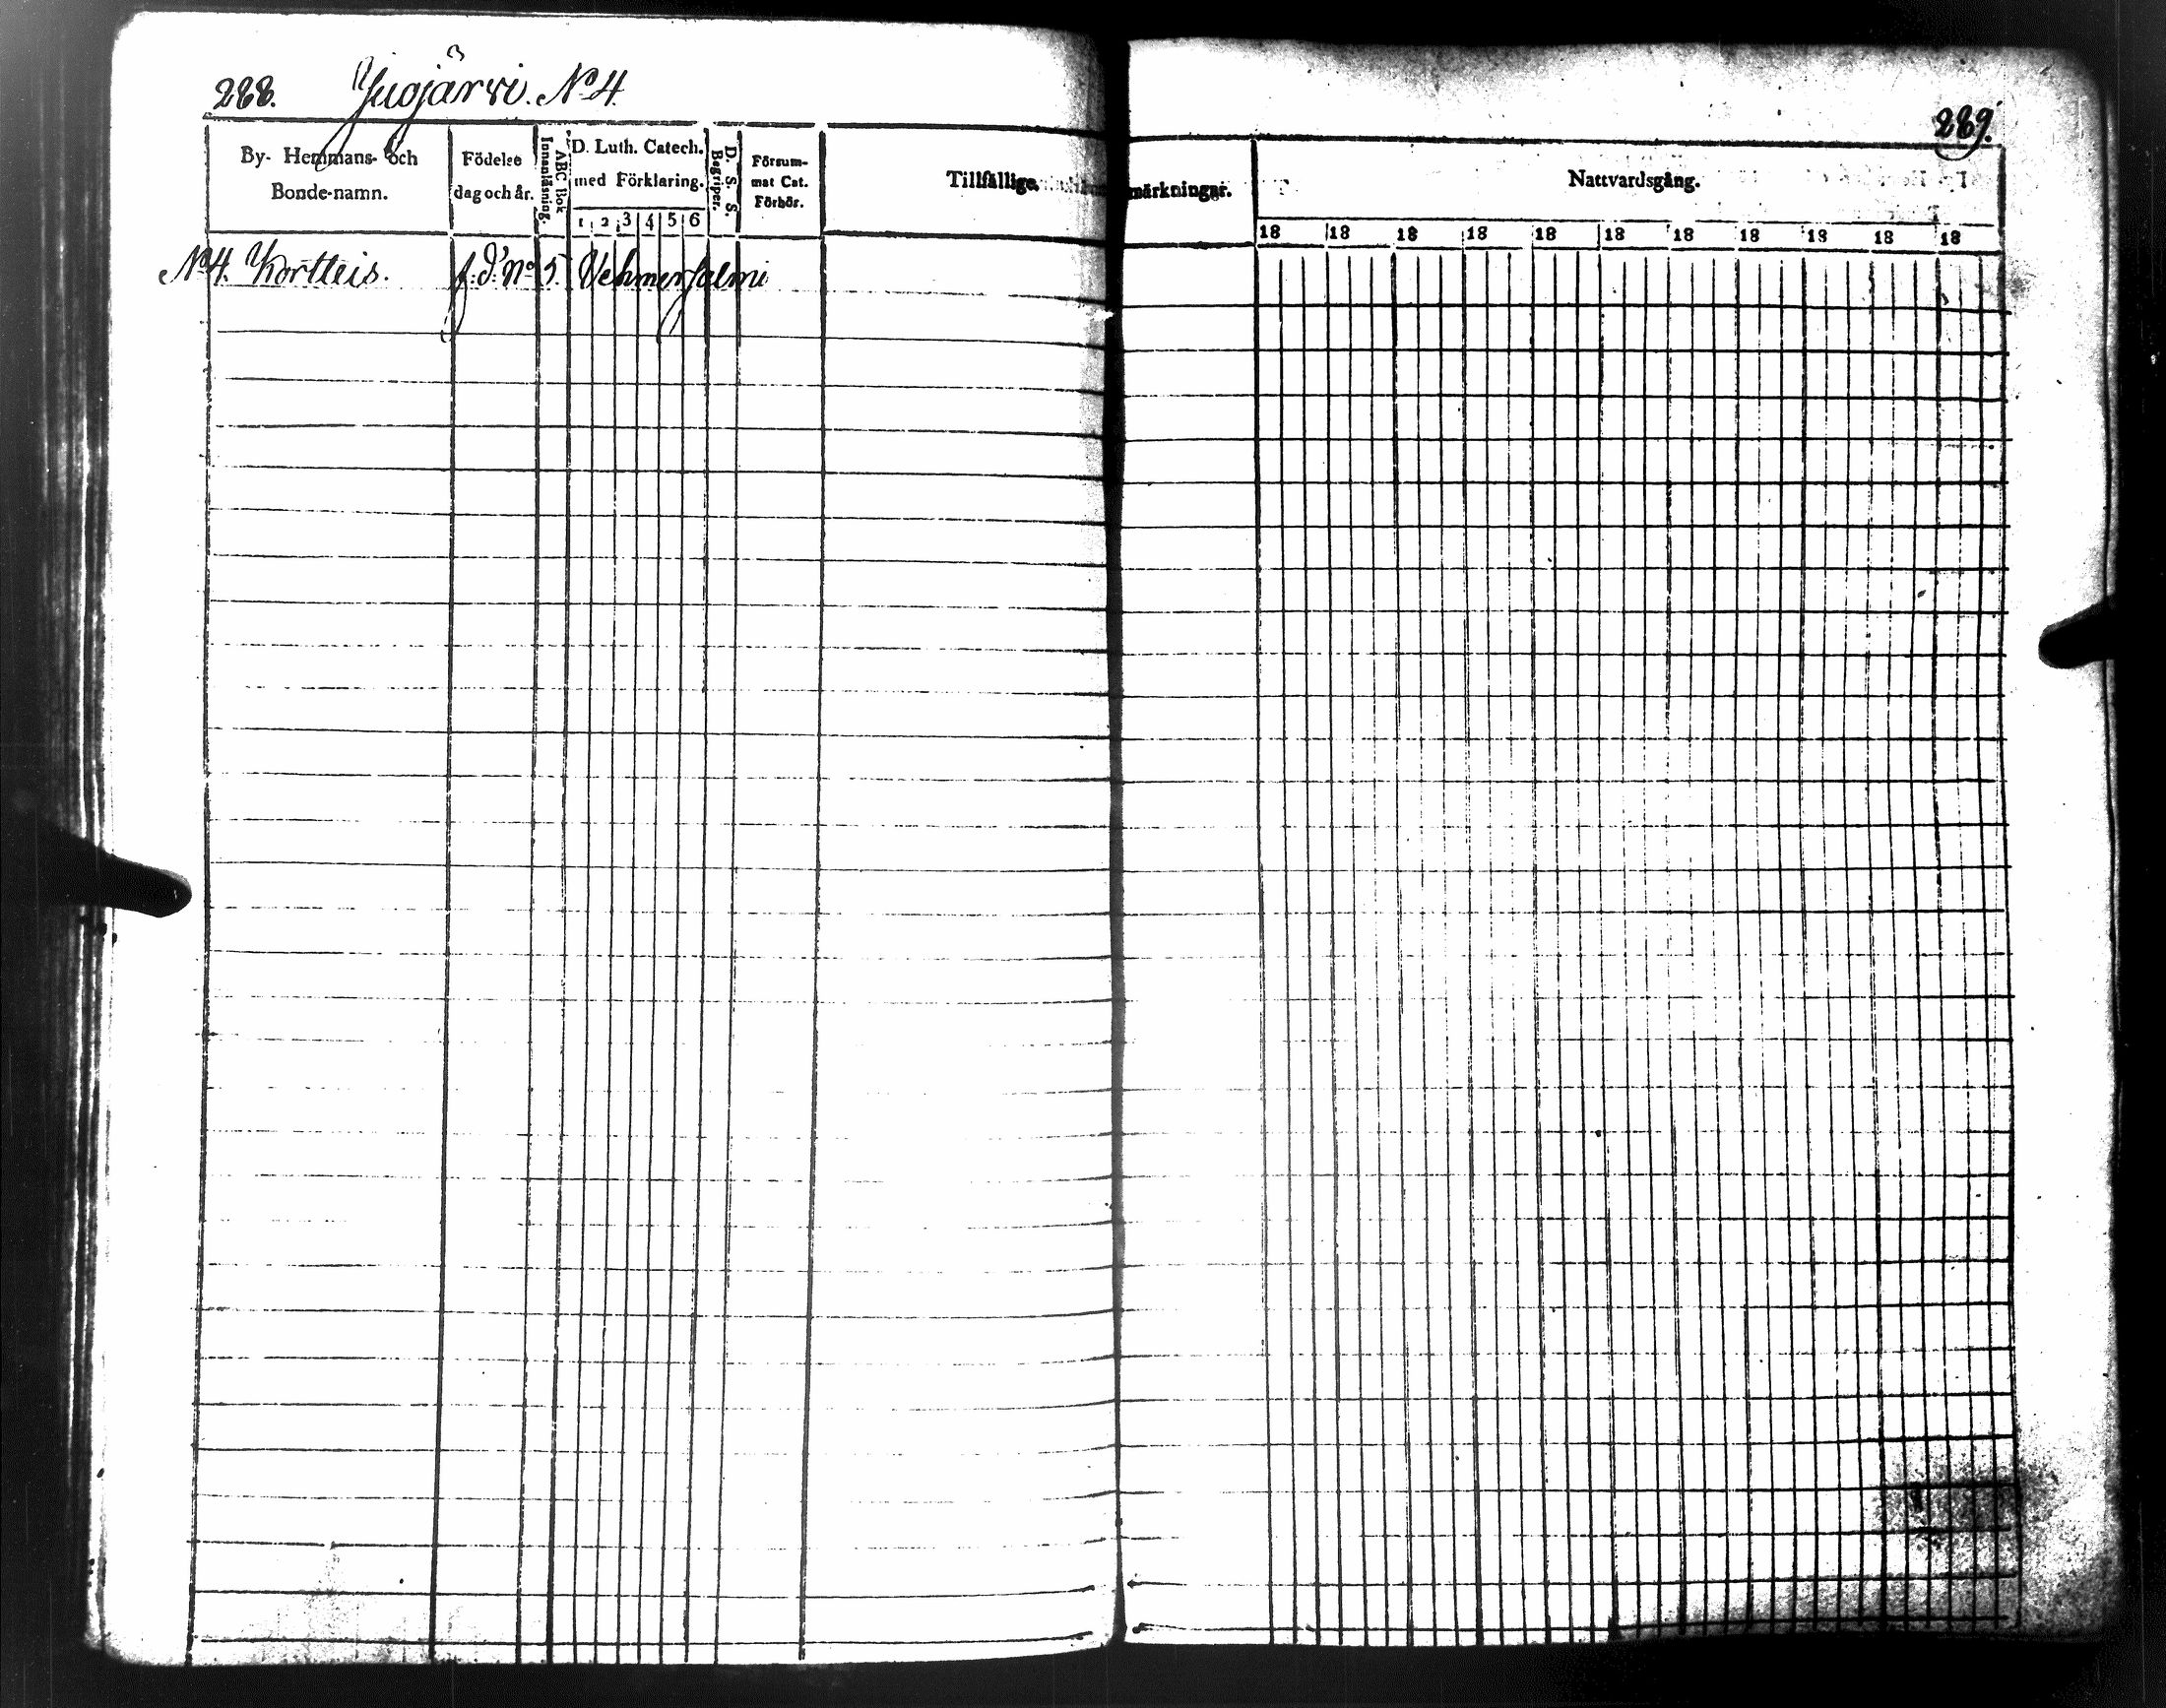 288. Jugjärvi. No 4.
289.
By- Hemmans- och Bonde-namn.
Födelse dag och år.
ABC Bok Innanläsning.
D. Luth. Catech. med Förklaring.
1 2 3 4 5 6
D. S. S. Begriper.
Försum-mat Cat. Förhör.
Tillfällige
märkningar.
Nattvardsgång.
18 18 18 18 18 18 18 18 18 18 18
No 4. Kortteis. f. d. No 5. Vehmersalmi